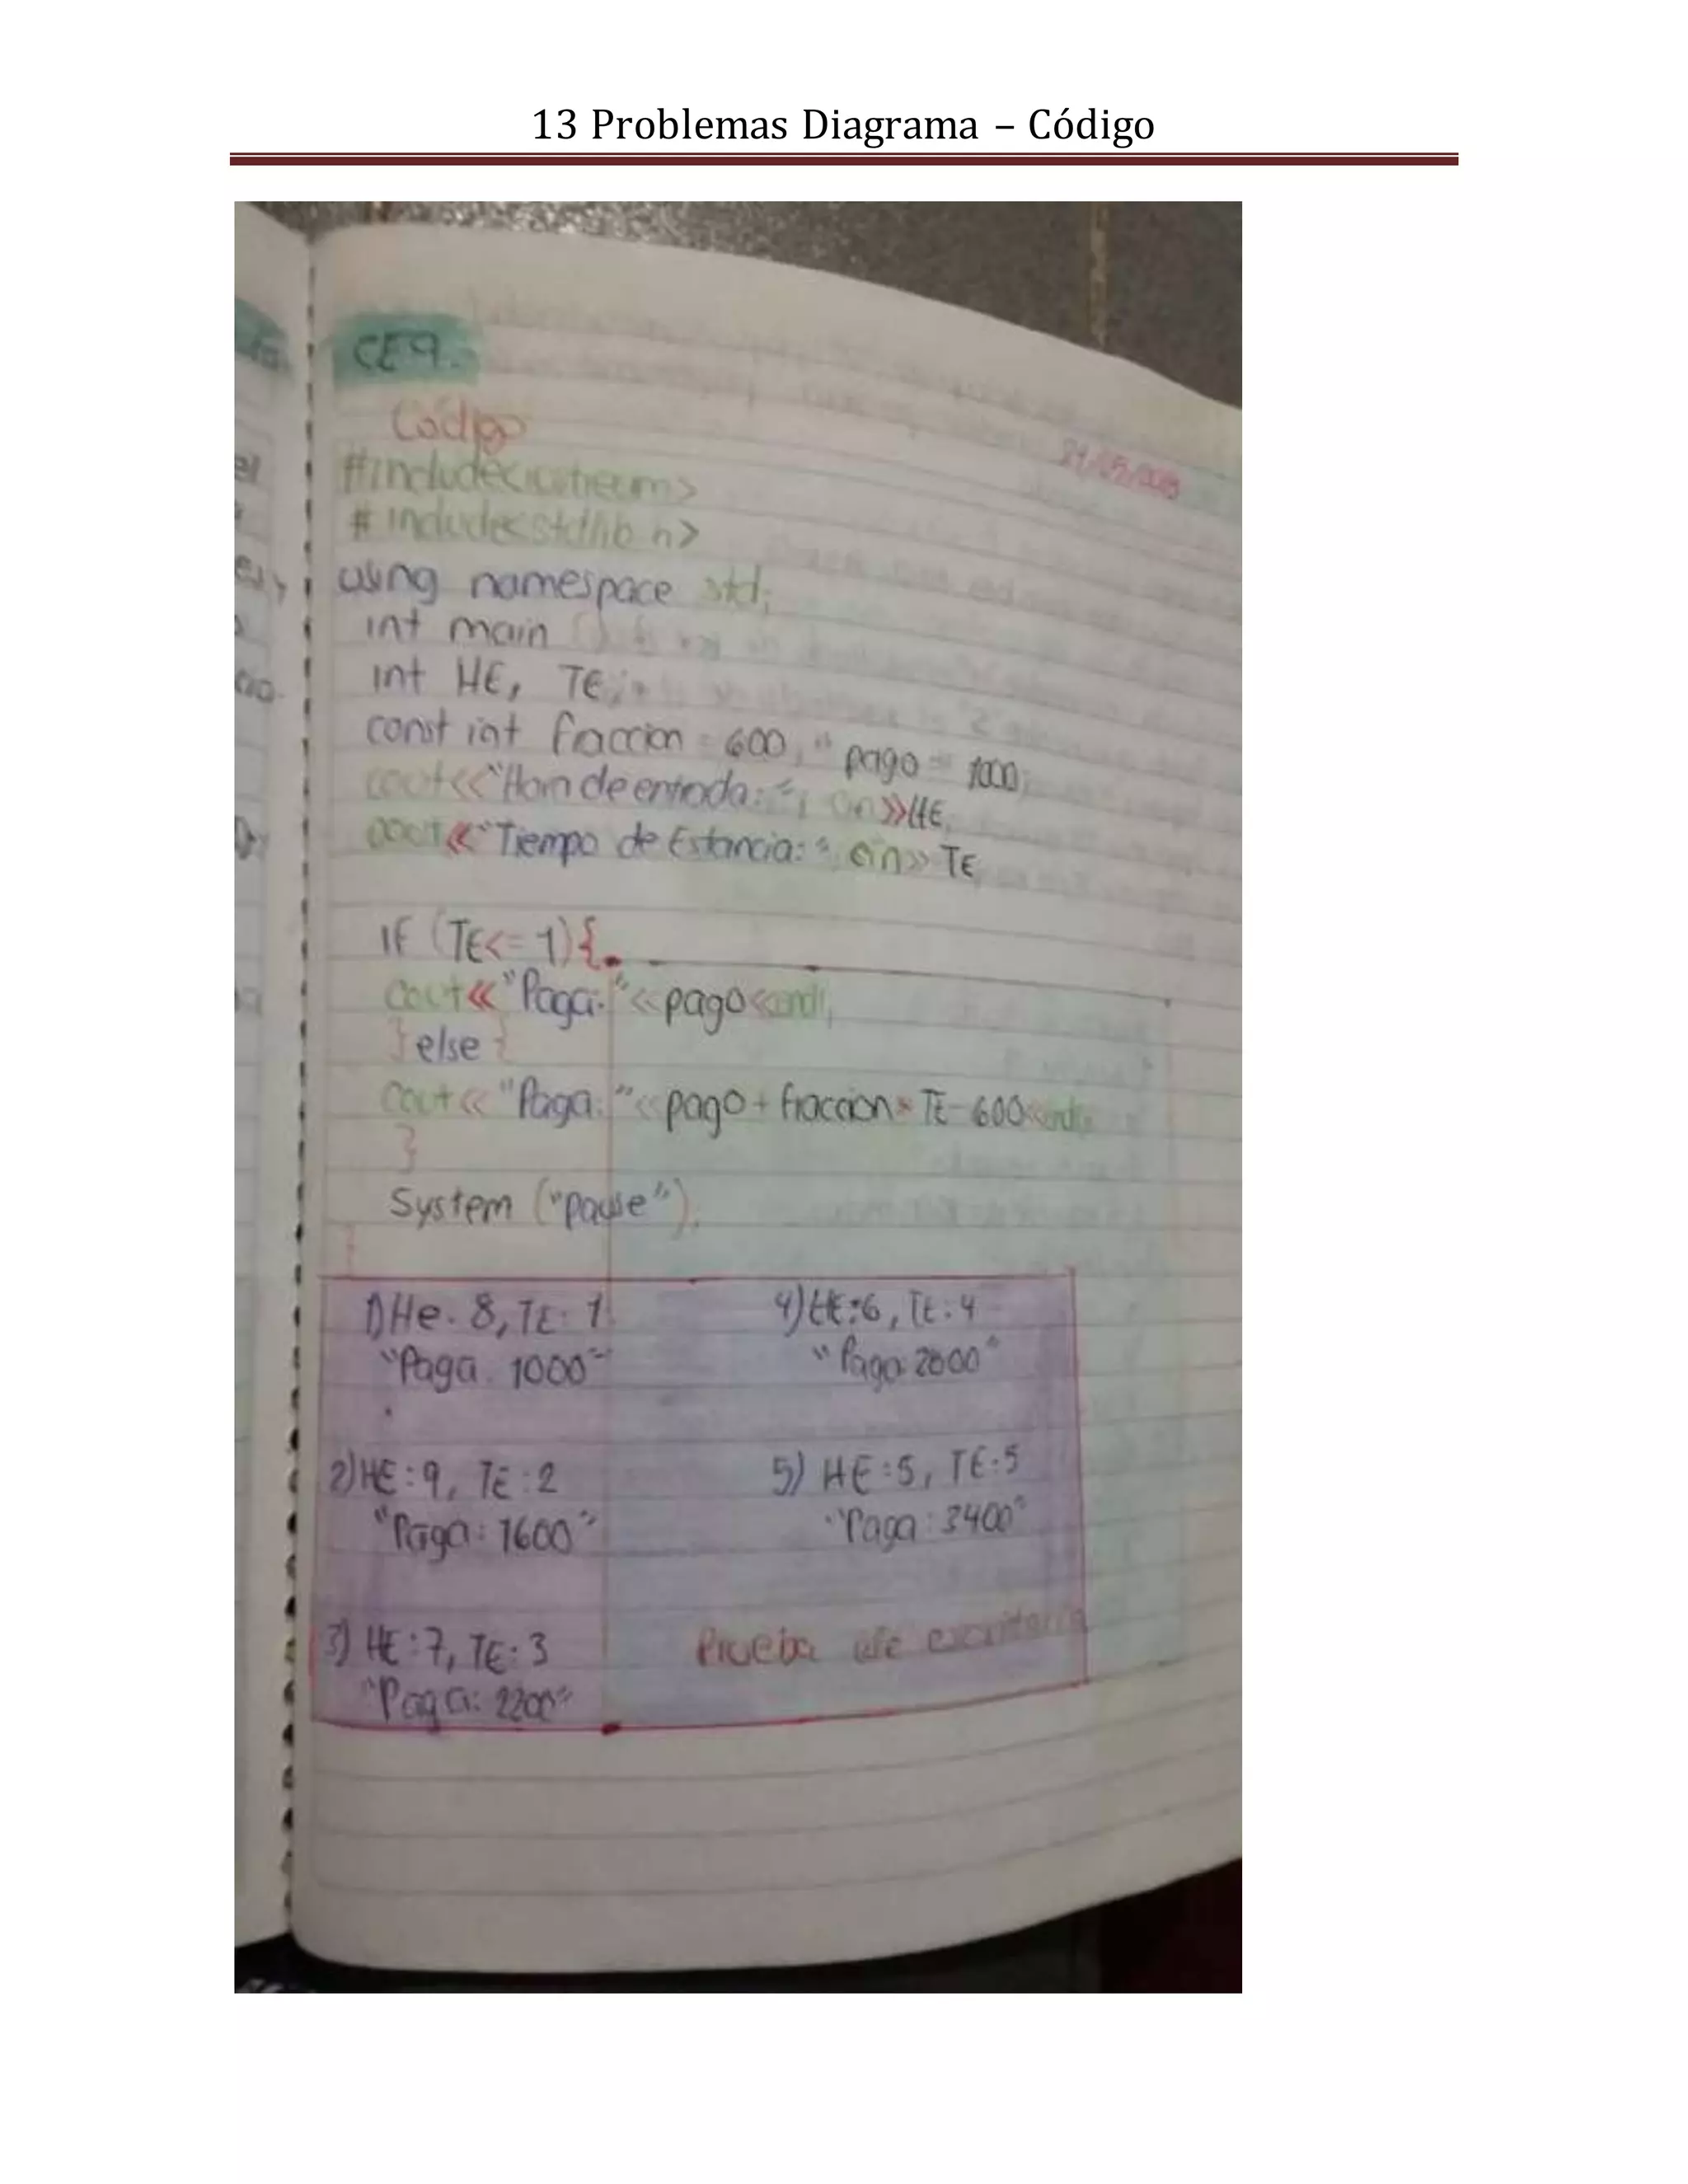 13 Problemas Diagrama – Código
CE9.
Código
#include<iostream>
#include<stdlib.h>
using namespace std;
int main () {
int HE, TE;
const int fraccion = 600, pago = 1000;
cout<<"Hora de entrada: "; cin>>HE;
cout<<"Tiempo de Estancia: "; cin>>TE
if (TE<= 1){
cout<<"Paga: "<<pago<<endl;
}else{
cout<<"Paga: "<<pago+fraccion*TE-600<<endl;
}
System ("pause");
}
1) He: 8, TE: 1
"Paga: 1000"
4) HE:6, TE:4
"Paga: 2800"
2) HE:9, TE:2
"Paga: 1600"
5) HE:5, TE:5
"Paga: 3400"
3) HE:7, TE:3
"Paga: 2200"
Prueba de escritorio